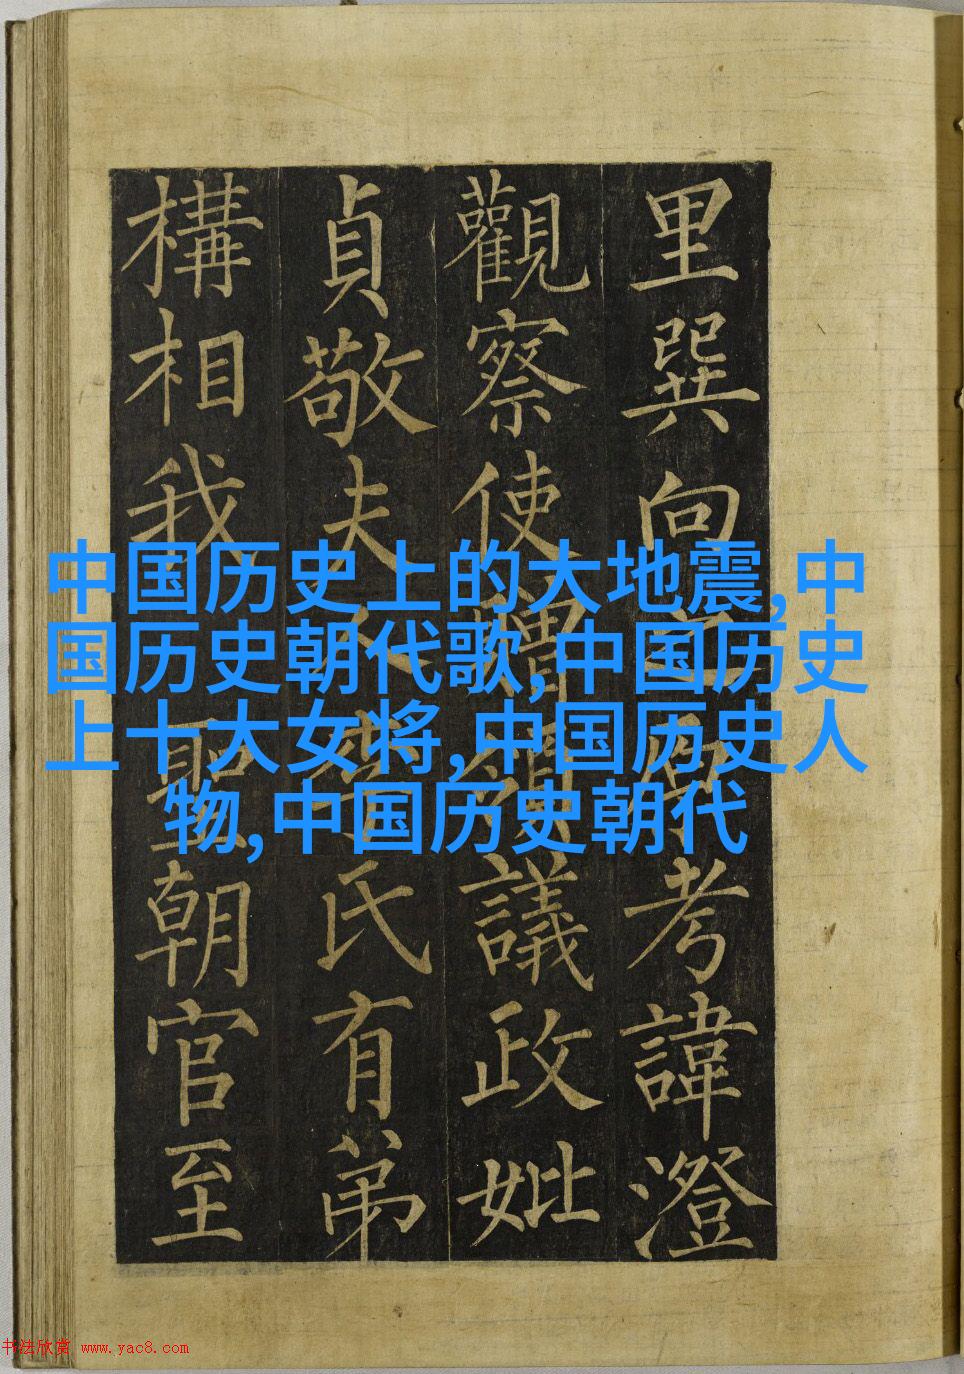 中国历史上的大地震,中
国历史朝代歌,中国历史
上十大女将,中国历史人
物,中国历史朝代
里巽向考諱澄
觀察使贈議政妣
貞敬夫人氏有弟
構相我聖朝官至
书法欣赏 www.yac8.com